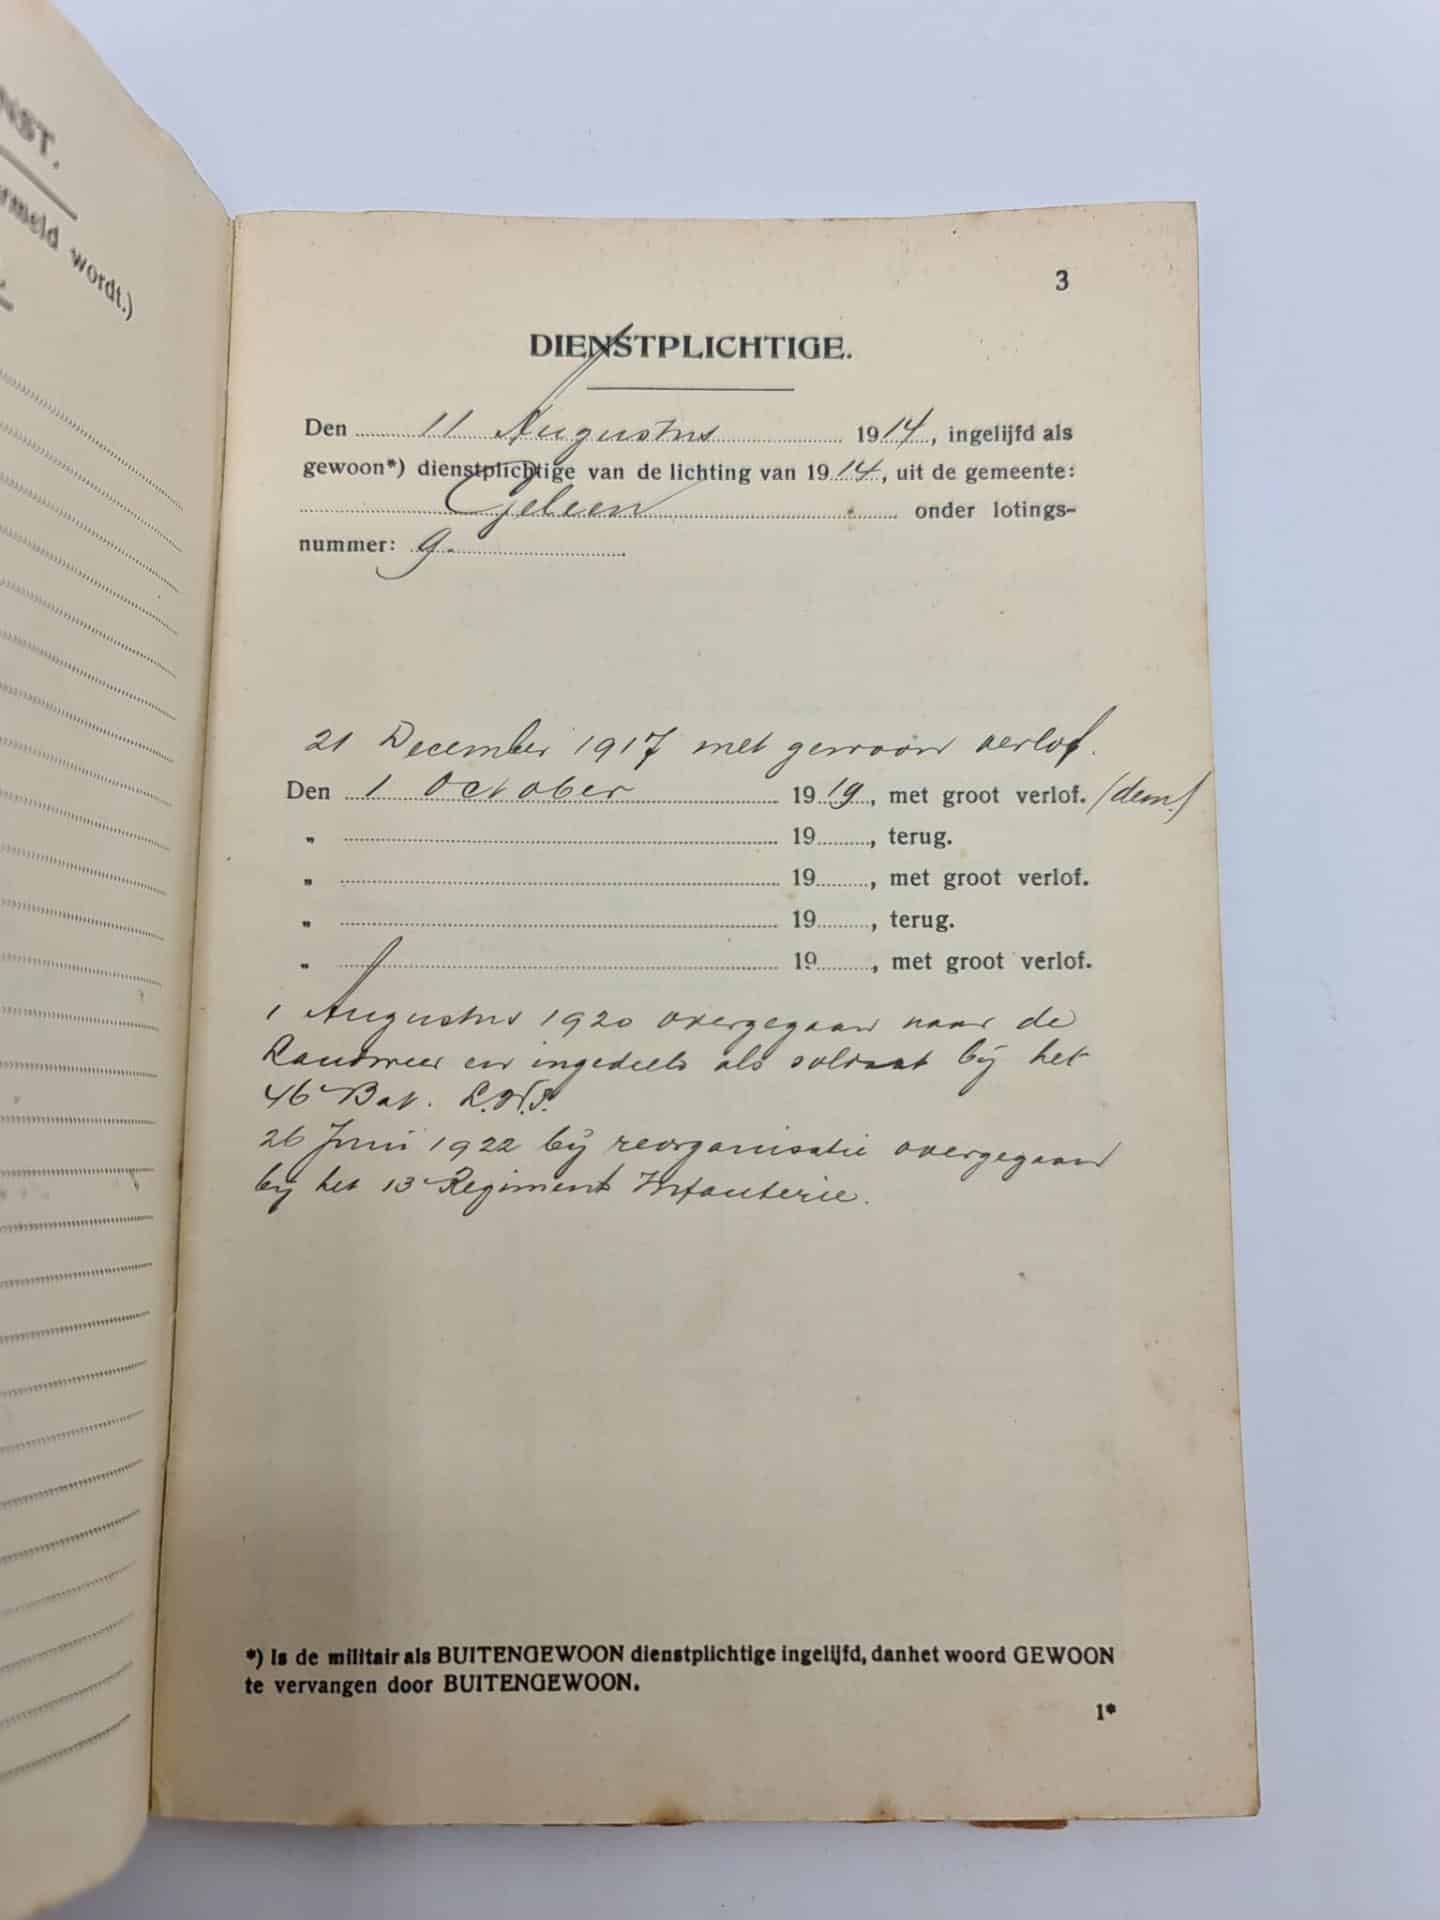 NST.
rmeld wordt.)
3
DIENSTPLICHTIGE.
Den 11 Augustus 1914, ingelijfd als
gewoon*) dienstplichtige van de lichting van 1914, uit de gemeente:
Geleen onder lotings-
nummer: 9.
21 December 1917 met gewoon verlof.
Den 1 October 1919, met groot verlof. (dem.)
„ 19, terug.
„ 19, met groot verlof.
„ 19, terug.
„ 19, met groot verlof.
1 Augustus 1920 overgegaan naar de
Landweer en ingedeeld als soldaat bij het
46e Bat. L.W.I.
26 Juni 1922 bij reorganisatie overgegaan
bij het 13e Regiment Infanterie.
*) Is de militair als BUITENGEWOON dienstplichtige ingelijfd, danhet woord GEWOON
te vervangen door BUITENGEWOON.
1*